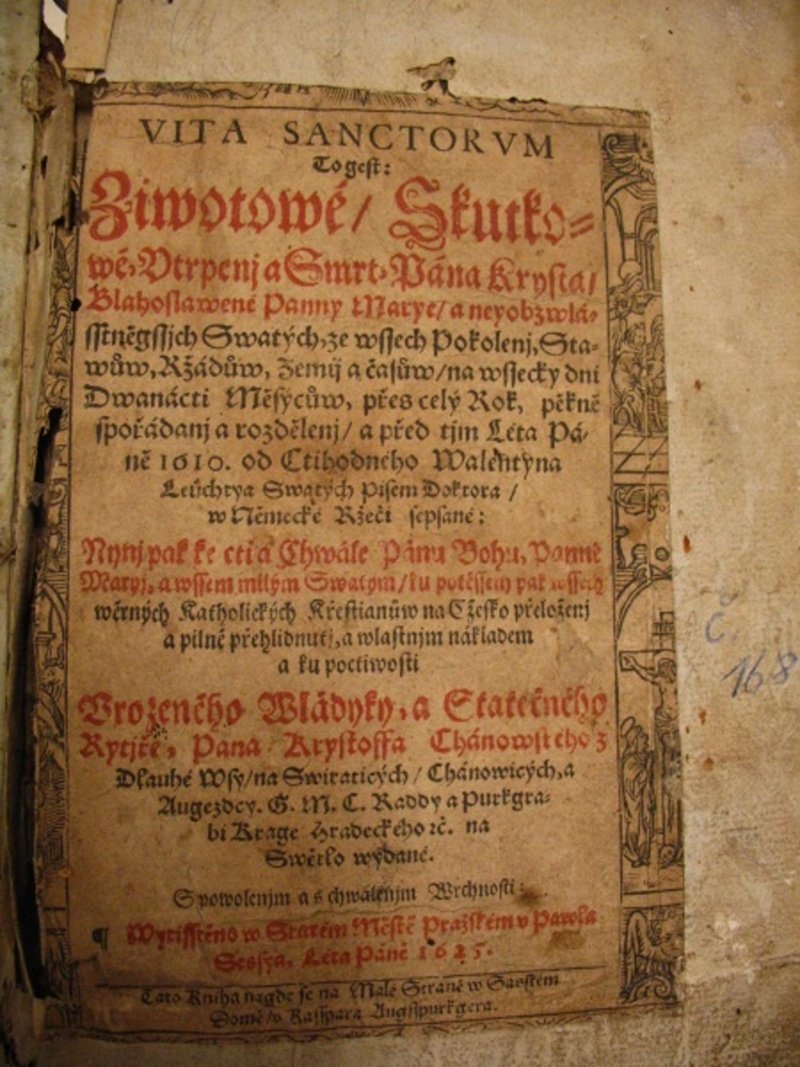 VITA SANCTORVM
To gest:
Ziwotowé/ Skutko-
wé, Vtrpenj a Smrt, Pána Krysta/
Blahoslawené Panny Marye/ a neyobzwlá-
sstněgssjch Swatých, ze wssech Pokolenj, Sta-
wůw, Ržádůw, Zemij a časůw/ na wssecky dni
Dwanácti Měsýcůw, přes celý Rok, pěkně
spořádanj a rozdělenj/ a před tjm Léta Pá-
ně 1610. od Ctihodného Walentýna
Leüchtya Swatých Pisem Doktora /
w Německé Ržeči sepsané:
Nynj pak ke cti a Chwále Pánu Bohu, Panně
Maryj, a wssem milým Swatým/ ku potěssenj pak wssech
wěrných Katholických Křestianůw na Cžesko přeloženj
a pilně přehlidnutj, a wlastnjm nákladem
a ku poctiwosti
Vrozeného Wládyky, a Statečného
Rytjře, Pana Krystoffa Chánowského z
Dlauhé Wsy/ na Switaticých/ Chánowicých, a
Augezdcy. G. M. C. Raddy a Purkgra-
bi Krage Hradeckého ꝛč. na
Swětlo wydané.
S powolenjm a s chwálenjm Wrchnosti:
¶ Wytisstěno w Starém Městě Pražském v Pawla
Sessya, Léta Páně 1625.
Tato Kniha nagde se na Malé Straně w Saském
Domě/ v Kasspara Augsspurkgera.
č.
168